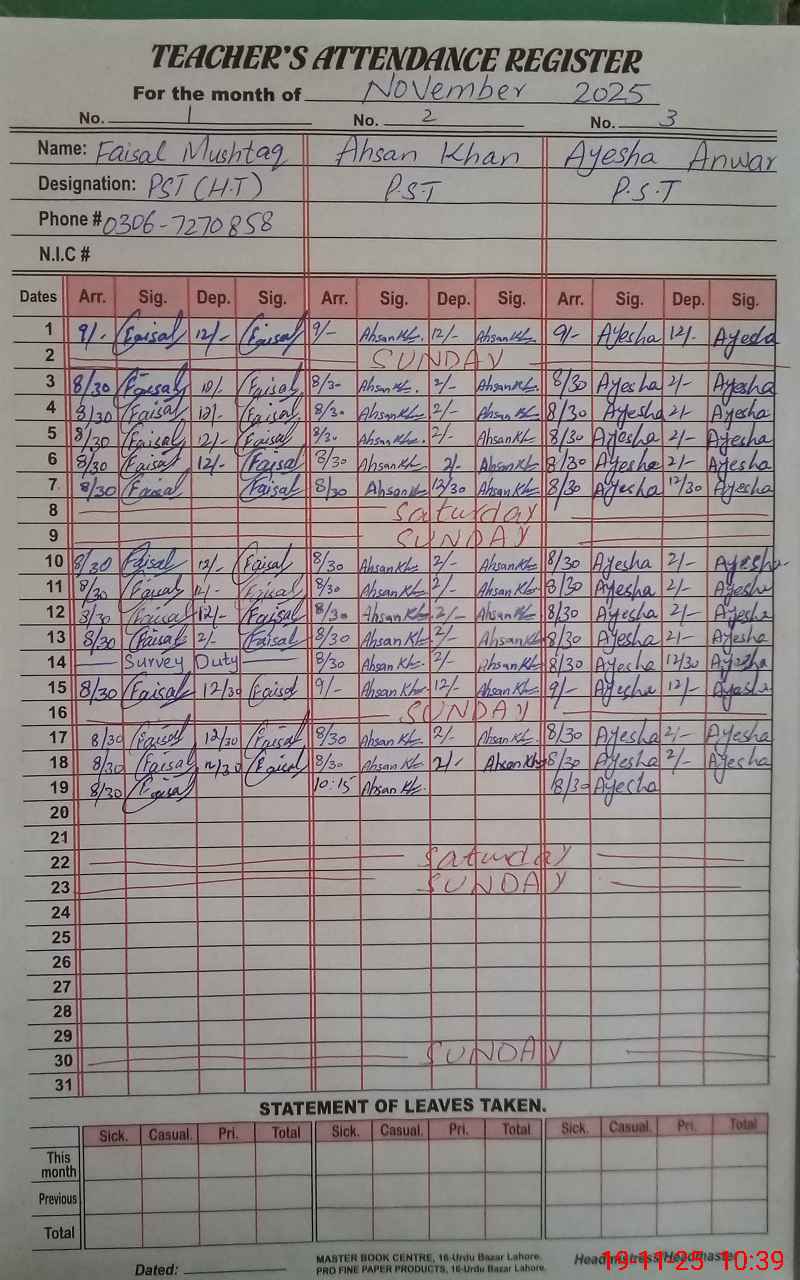 TEACHER'S ATTENDANCE REGISTER
For the month of November 2025
No. 1 No. 2 No. 3
Name: Faisal Mushtaq Ahsan Khan Ayesha Anwar
Designation: PST (H.T) P.S.T P.S.T
Phone # 0306-7270858
N.I.C #
Dates Arr. Sig. Dep. Sig. Arr. Sig. Dep. Sig. Arr. Sig. Dep. Sig.
1 9/- Faisal 12/- Faisal 9/- Ahsan Kh 12/- Ahsan Kh 9/- Ayesha 12/-
2 SUNDAY
3 8/30 Faisal Faisal 8/30 Ahsan Kh 2/- Ahsan Kh 8/30 Ayesha 2/- Ayesha
4 8/30 Faisal 12/- Faisal 8/30 Ahsan Kh 2/- Ahsan Kh 8/30 Ayesha 2/- Ayesha
5 8/30 Faisal 12/- Faisal 8/30 Ahsan Kh 2/- Ahsan Kh 8/30 Ayesha 2/- Ayesha
6 8/30 Faisal 12/- Faisal 8/30 Ahsan Kh 2/- Ahsan Kh 8/30 Ayesha 2/- Ayesha
7 8/30 Faisal Faisal 8/30 Ahsan Kh 12/30 Ahsan Kh 8/30 Ayesha 12/30 Ayesha
8 Saturday
9 SUNDAY
10 8/30 Faisal 12/- Faisal 8/30 Ahsan Kh 2/- Ahsan Kh 8/30 Ayesha 2/- Ayesha
11 8/30 Faisal Faisal 8/30 Ahsan Kh 2/- Ahsan Kh 8/30 Ayesha 2/- Ayesha
12 8/30 Faisal 12/- Faisal 8/30 Ahsan Kh 2/- Ahsan Kh 8/30 Ayesha 2/- Ayesha
13 8/30 Faisal 2/- Faisal 8/30 Ahsan Kh 2/- Ahsan Kh 8/30 Ayesha 2/- Ayesha
14 Survey Duty 8/30 Ahsan Kh 2/- Ahsan Kh 8/30 Ayesha 12/30 Ayesha
15 8/30 Faisal 12/30 Faisal 9/- Ahsan Kh 12/- Ahsan Kh 9/- Ayesha 12/- Ayesha
16 SUNDAY
17 8/30 Faisal 12/30 Faisal 8/30 Ahsan Kh 2/- Ahsan Kh 8/30 Ayesha 2/- Ayesha
18 8/30 Faisal 12/30 Faisal 8/30 Ahsan Kh 2/- Ahsan Kh 8/30 Ayesha 2/- Ayesha
19 8/30 Faisal 10:15 Ahsan Kh 8/30 Ayesha
20
21
22 Saturday
23 SUNDAY
24
25
26
27
28
29
30 SUNDAY
31
STATEMENT OF LEAVES TAKEN.
Sick. Casual. Pri. Total Sick. Casual. Pri. Total Sick. Casual. Pri. Total
This month
Previous
Total
Dated:
MASTER BOOK CENTRE, 16-Urdu Bazar Lahore.
PRO FINE PAPER PRODUCTS, 16-Urdu Bazar Lahore.
Headmistress/Headmaster
19-11-25 10:39